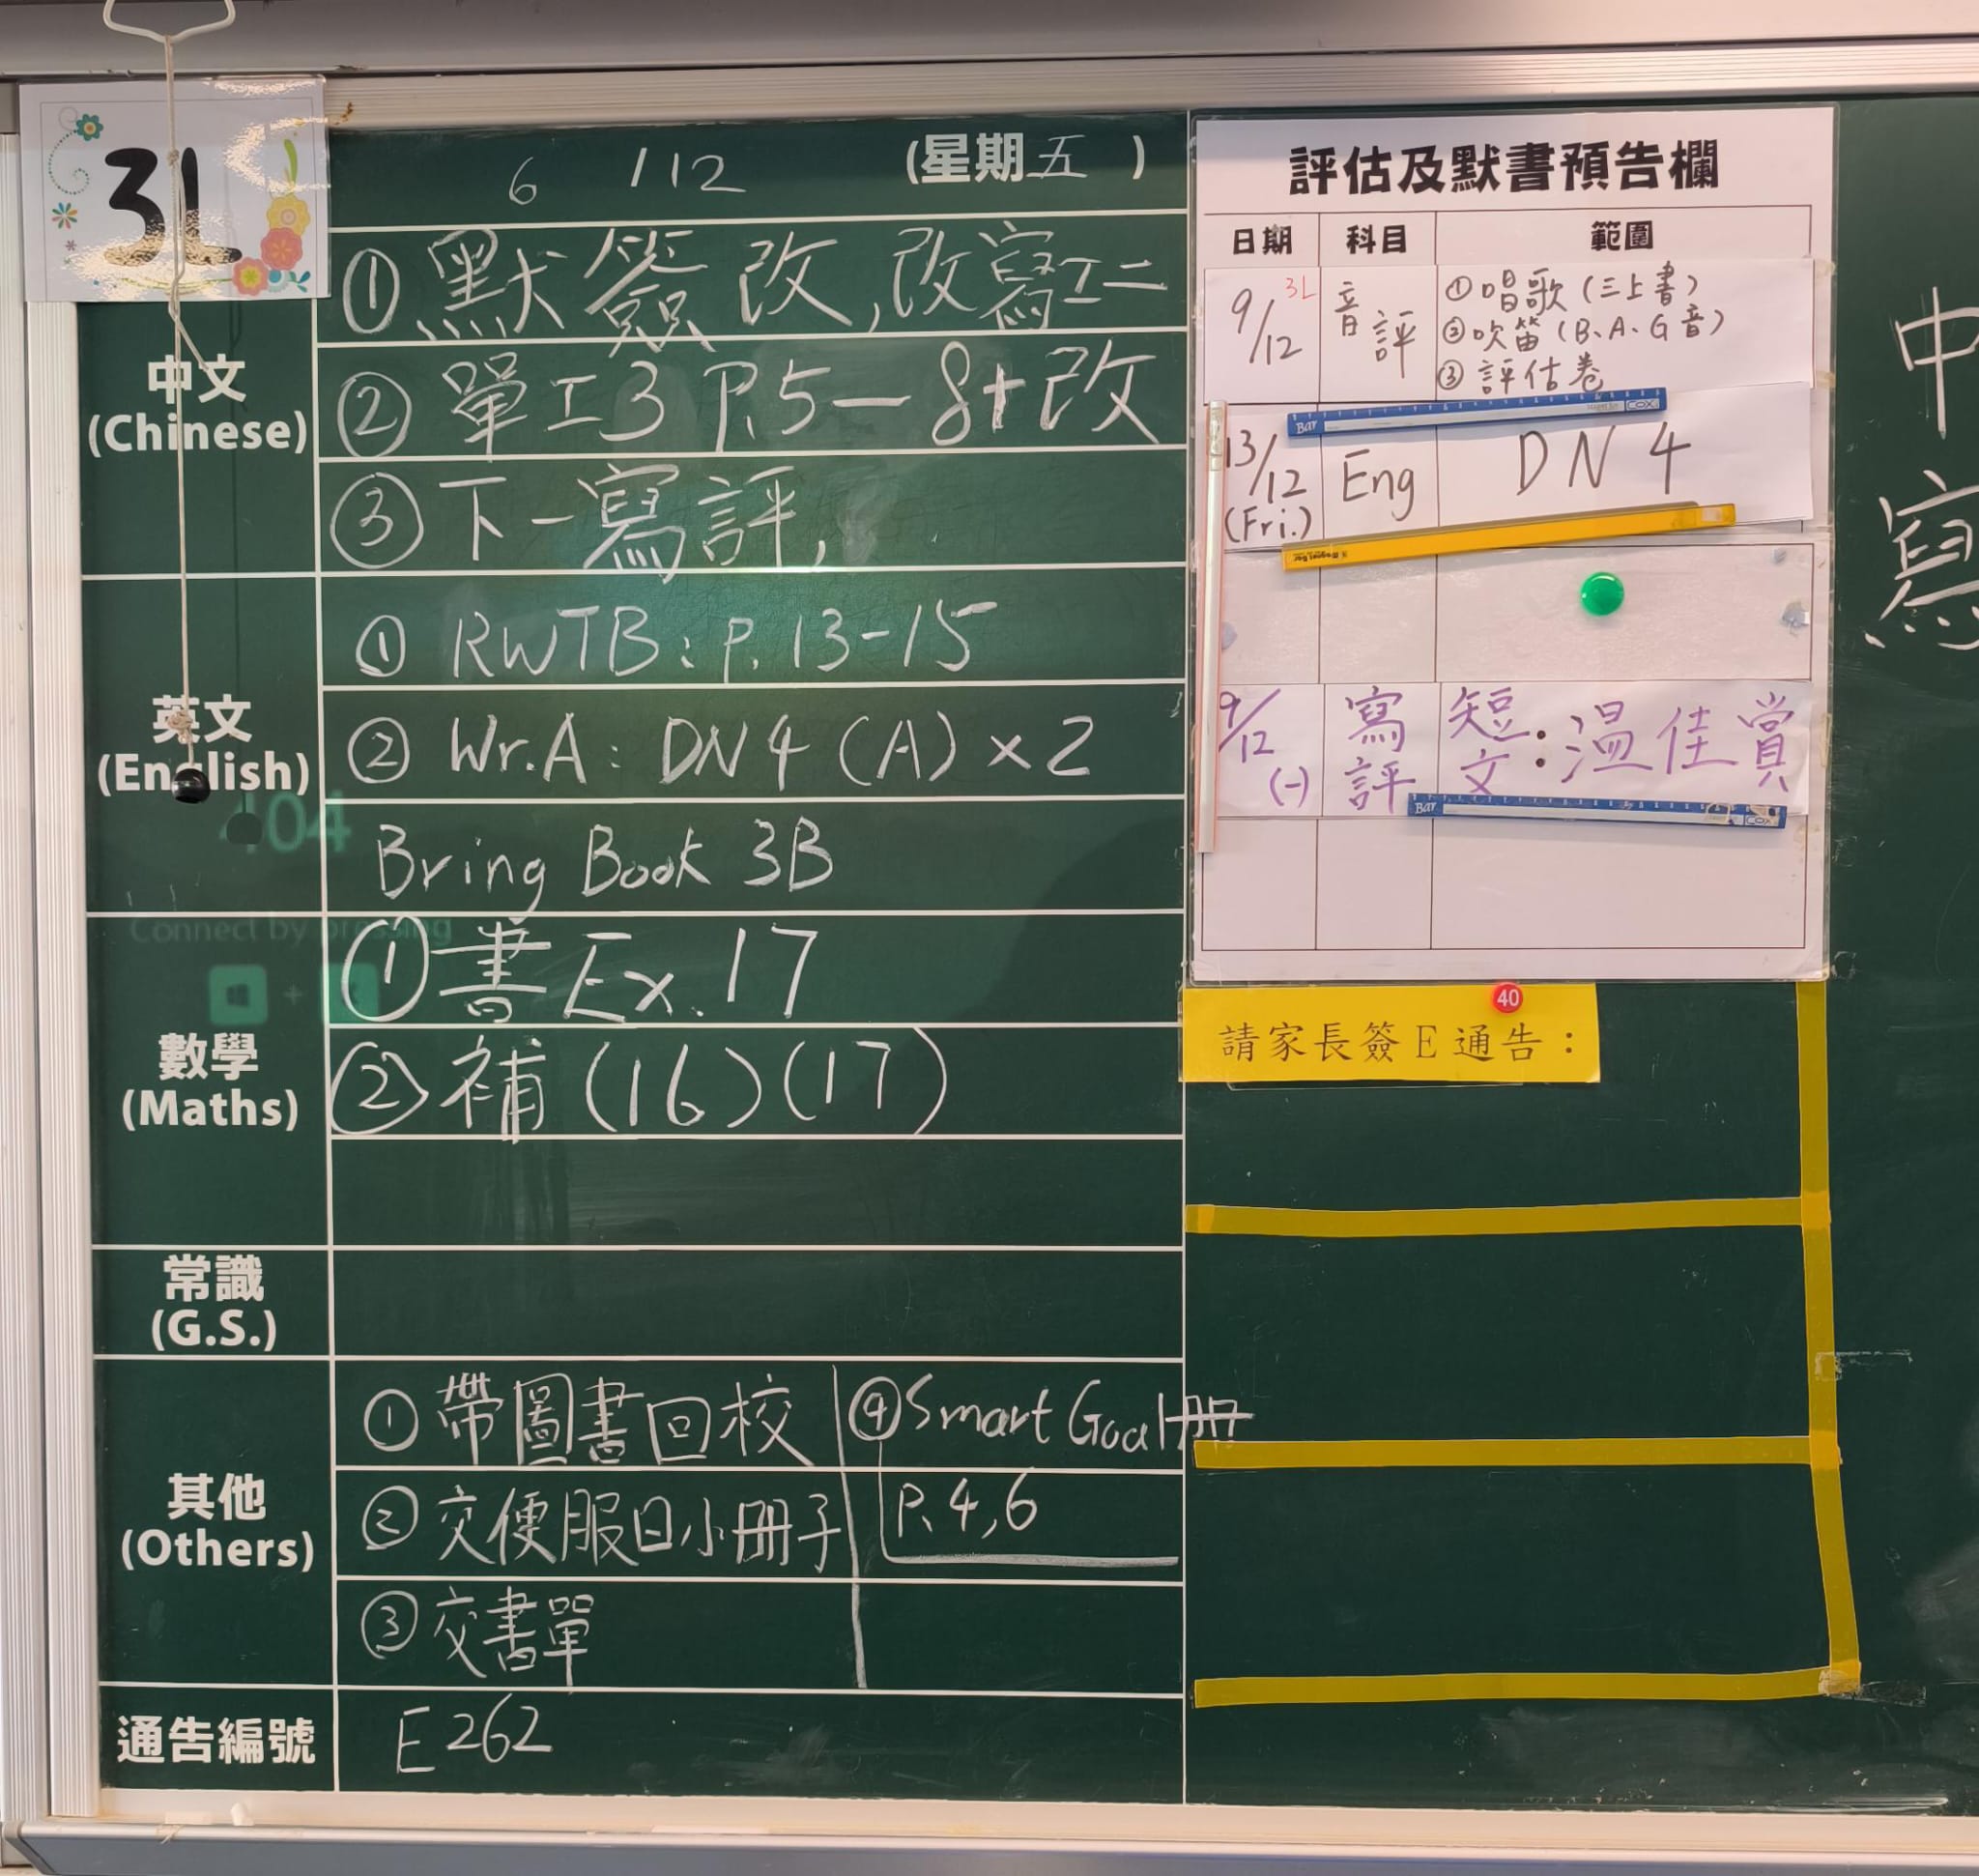 3L
6/12 (星期五)
中文
(Chinese)
①默簽改,改寫工二
②單工3 P.5—8+改
③下一寫評,
英文
(English)
① RWTB: P.13-15
② Wr.A: DN4 (A) ×2
Bring Book 3B
數學
(Maths)
①書Ex.17
②補(16)(17)
常識
(G.S.)
其他
(Others)
①帶圖書回校
②交便服日小冊子
③交書單
④Smart Goal冊
P.4,6
通告編號
E262
評估及默書預告欄
日期 科目 範圍
9/12 3L 音評 ①唱歌(三上書)
②吹笛(B、A、G音)
③評估卷
13/12 (Fri.) Eng DN 4
9/12 (一) 寫評 短文:溫佳賞
Bar COX
Bar COX
40
請家長簽E通告:
404
Connect by pressing
+ K
中
寫